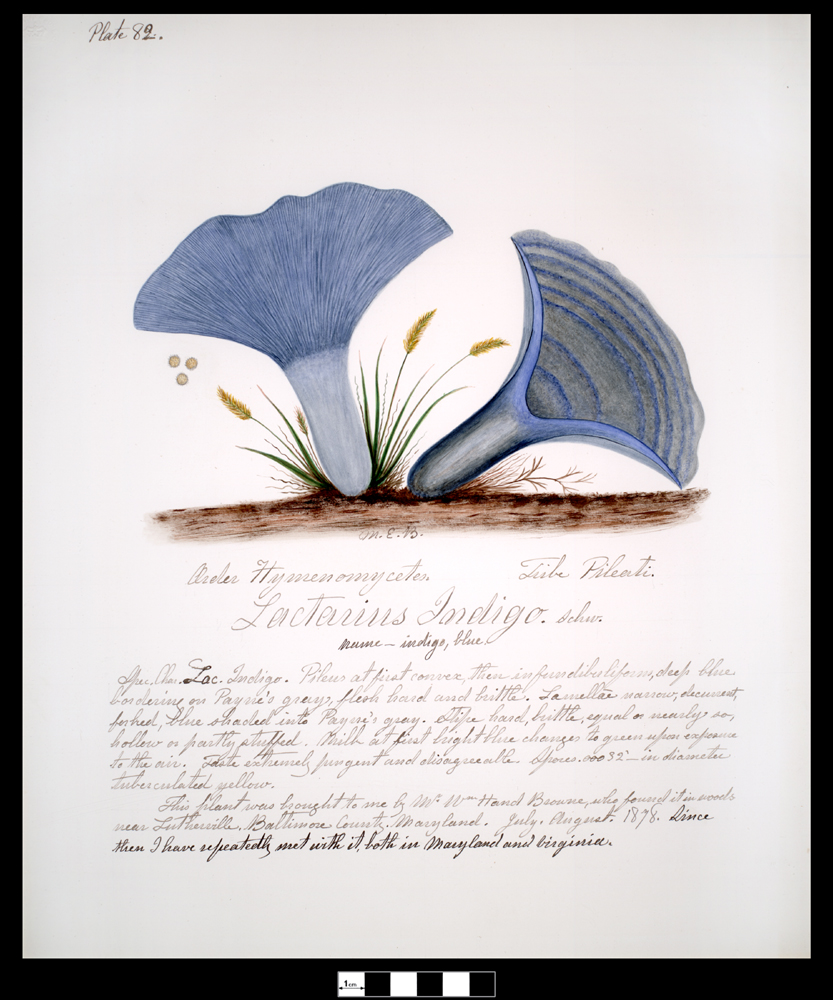 Plate 82.
M.E.B.
Order Hymenomycetes. Tribe Pileati.
Lactarius Indigo. Schw.
name – indigo, blue.
Spec. Char. Lac. Indigo. Pileus at first convex, then infundibuliform, deep blue
bordering on Payne's gray, flesh hard and brittle. Lamellae narrow, decurrent,
forked, blue shaded into Payne's gray. Stipe hard, brittle, equal or nearly so,
hollow or partly stuffed. Milk at first bright blue changes to green upon exposure
to the air. Taste extremely pungent and disagreeable. Spores .00032 in diameter
tuberculated yellow.
This plant was brought to me by Mr. Wm Hand Browne, who found it in woods
near Lutherville, Baltimore County, Maryland. July. August. 1878. Since
then I have repeatedly met with it, both in Maryland and Virginia.
1 cm